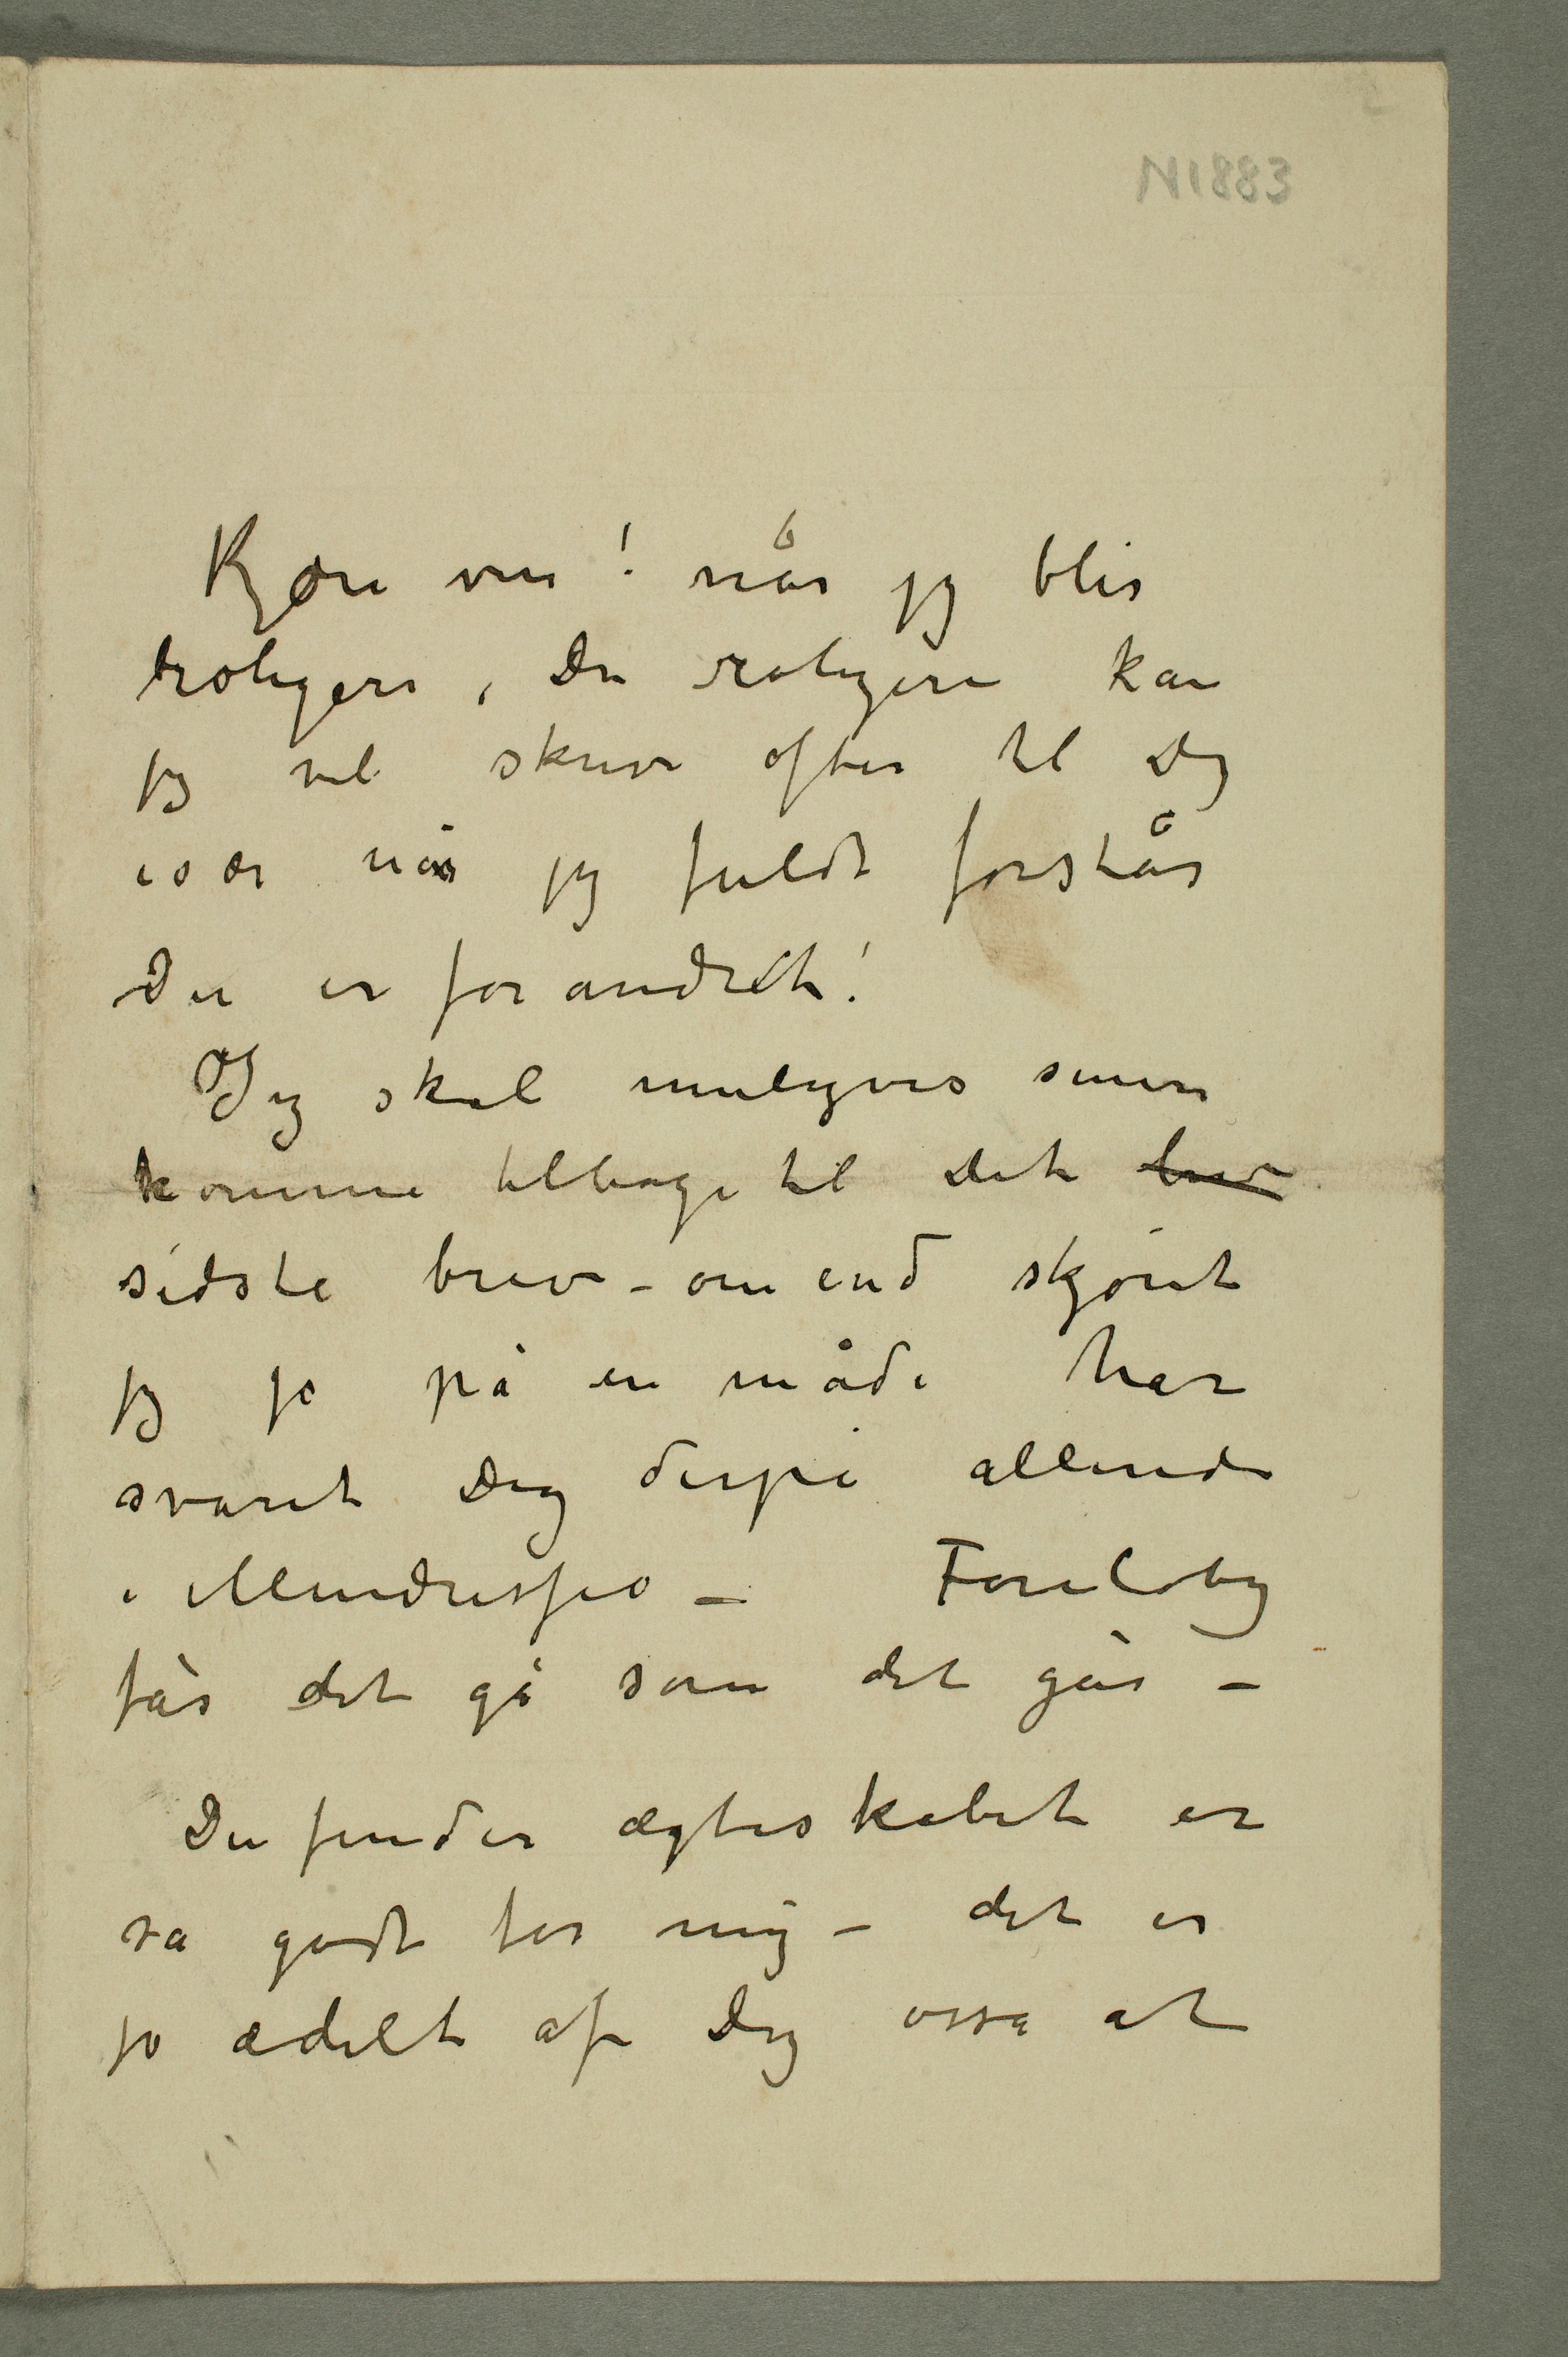 N1883
Kjære ven! når jeg blir
roligere, Du roligere kan
jeg vel skrive ofter til Dig
især når jeg fuldt forstår
Du er forandret!
Jeg skal muligvis senere
komme tilbage til dete brev
sidste brev – om end skjønt
jeg jo på en måde har
svaret Dig derpå allerede
i Meudresses – Foreløbig
får det gå som det går –
Du finder ægteskabet er
så godt for mig – det er
jo ædelt af Dig osså at